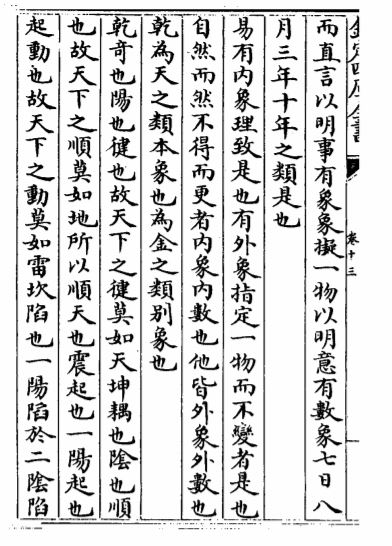 欽定四庫全書
卷十三
而直言以明事有象象擬一物以明意有數象七日八
月三年十年之類是也
易有内象理致是也有外象指定一物而不變者是也
自然而然不得而更者内象内數也他皆外象外數也
乾為天之類本象也為金之類别象也
乾奇也陽也健也故天下之健莫如天坤耦也陰也順
也故天下之順莫如地所以順天也震起也一陽起也
起動也故天下之動莫如雷坎陷也一陽陷於二陰陷